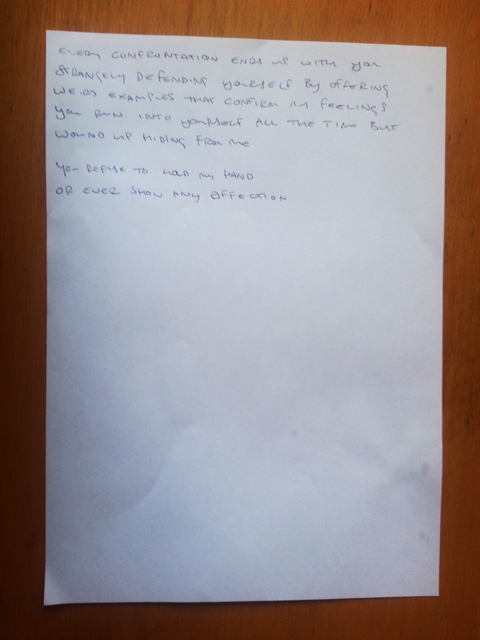 EVERY CONFRONTATION ENDS UP WITH you
STRANGELY DEFENDING yourself By OFFERING
WEIRD EXAMPLES THAT CONFIRM my FEELINGS
you RUN INTO yourself ALL THE TIME BUT
WOUND UP HIDING FROM ME
you REFUSE TO HOLD my HAND
OR EVER SHOW ANY AFFECTION